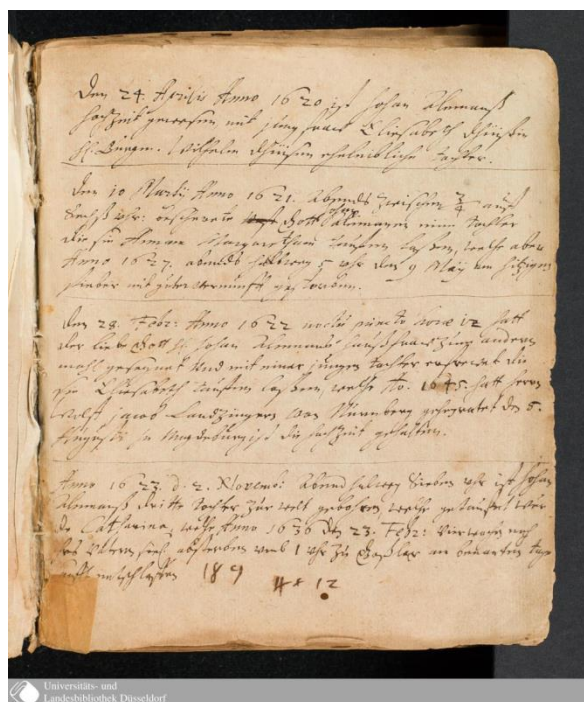 Den 24. Aprilis Anno 1620 ist Johan Alemanß
hochzeit gewesen mit jungfraw Eliesabeth
H. Wilhelm eheleibliche tochter.
Den 10 Martii Anno 1621. Abends zwischen auff
Sechß uhr: bescherete Gott Alemannen eine Tochter
die sie Annam Margaretham tauffen lassen, welche aber
Anno 1627. abends halbweg 5 uhr den 9 May am hitzigen
fieber mit guter vernunfft gestorben.
Den 28. Febr: Anno 1622 noctu puncto horæ 12 hatt
der liebe Gott H. Johan Alemans haußfraw zum andern
mahl gesegnet Und mit einer jungen tochter erfrewet die
sie Eliesabeth tauffen lassen, welche Ao. 1645. hatt herrn
Jacob Landzinger von Nürnberg geheyratet den 5.
Augusti zu Magdeburg ist die hochzeit gehalten.
Anno 1623. d. 2. Novemb: Abend halbweg Sieben uhr ist Johan
Alemanß dritte tochter zur welt gebohren welche getauffet
Catharina, welche Anno 1636 den 23. Febr: vier wochen nach
des Vatern absterben umb 1 uhr zu Goßlar an
entschlaffen 189
4 12
Universitäts- und
Landesbibliothek Düsseldorf